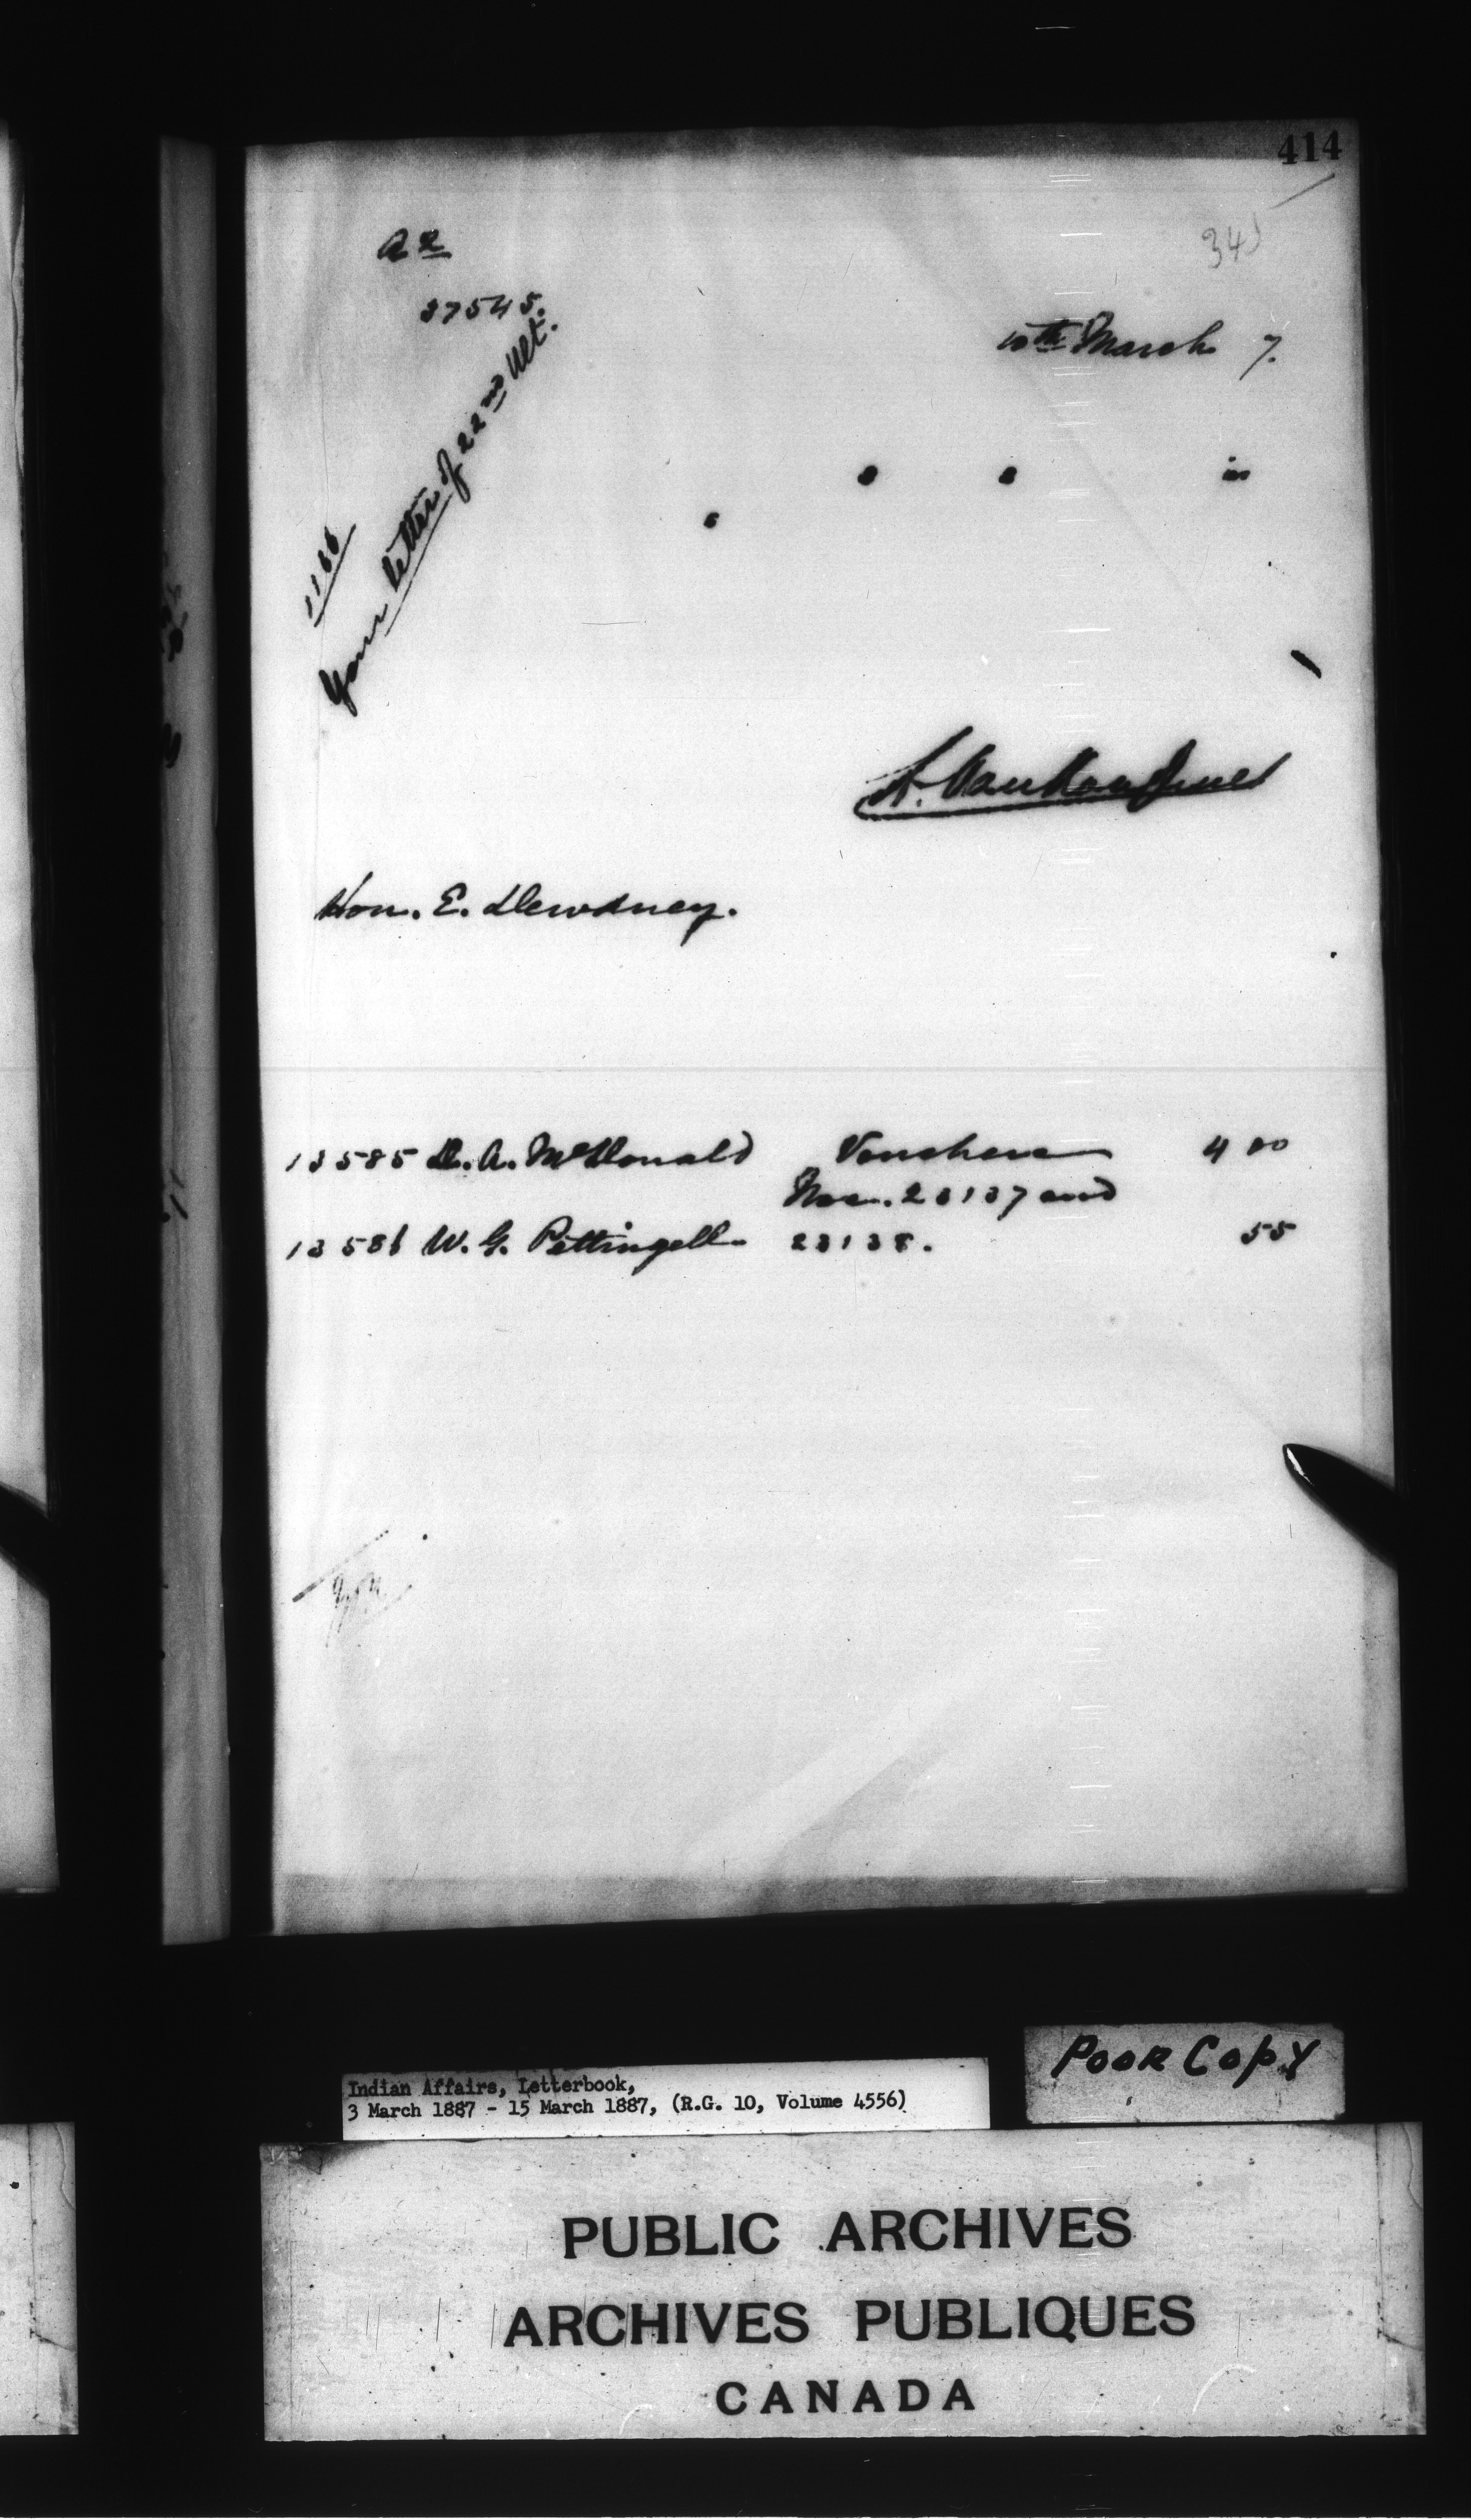 414
A 2
34
37545.
10th March 7.
1166
Your letter of 22nd Ult.
s s in
s
L. Vankoughnet
Hon. E. Dewdney.
13585 D. A. McDonald Vouchers 4 00
Nos. 23137 and
13586 W. G. Pettingell 23138. 55
Poor Copy
Indian Affairs, Letterbook,
3 March 1887 - 15 March 1887, (R.G. 10, Volume 4556)
PUBLIC ARCHIVES
ARCHIVES PUBLIQUES
CANADA